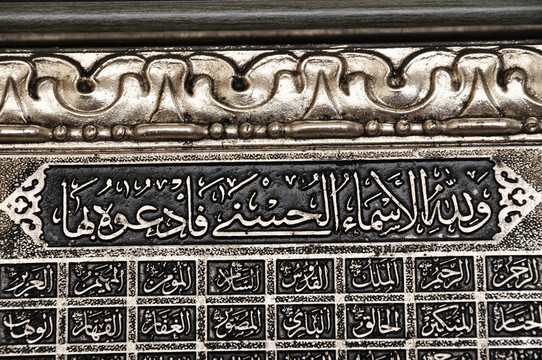 ولله الأسماء الحسنى فادعوه بها
الرحمن الرحيم الملك القدوس السلام المؤمن المهيمن العزيز
الجبار المتكبر الخالق البارئ المصور الغفار القهار الوهاب